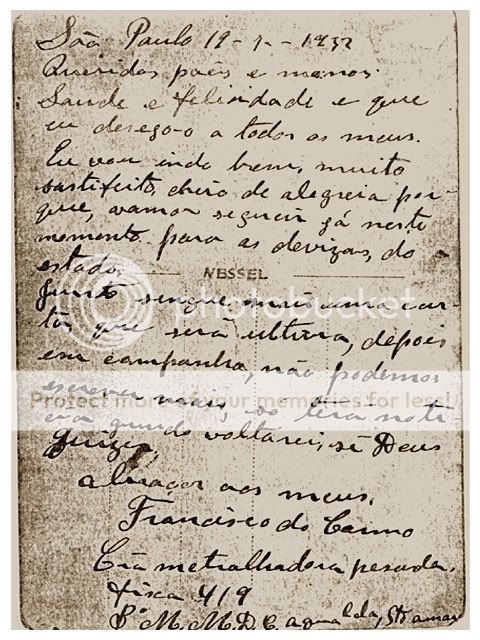 São Paulo 19-7-1932
Queridos paes e manos.
Saude e felicidade e que
eu desego-o a todos os meus.
Eu vou indo bem, muito
sastifeito, cheio de alegreia por-
que, vamos seguir já neste
momento para as devizas, do
estado,
VESSEL
Junto segue, mais uma car-
ta, que será ultima, depois
em campanha, não podemos
escrever mais, so tera noti
cia quando voltarei, si Deus
quizer.
abraços aos meus,
Francisco do Carmo
Cia metralhadora pesada.
fixa 419
M. M. D. C.
photobucket
Protect more of your memories for less!